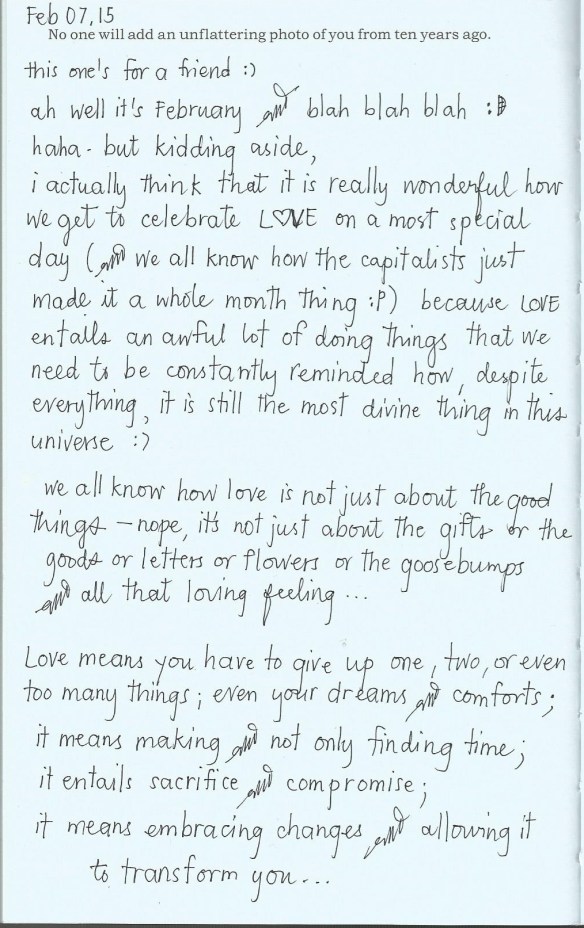 Feb 07, 15
No one will add an unflattering photo of you from ten years ago.
this one's for a friend :)
ah well it's February and blah blah blah :D
haha - but kidding aside,
i actually think that it is really wonderful how
we get to celebrate L♡VE on a most special
day (and we all know how the capitalists just
made it a whole month thing :P) because LOVE
entails an awful lot of doing things that we
need to be constantly reminded how, despite
everything, it is still the most divine thing in this
universe :)
we all know how love is not just about the good
things – nope, it's not just about the gifts or the
goods or letters or flowers or the goosebumps
and all that loving feeling...
Love means you have to give up one, two, or even
too many things; even your dreams and comforts;
it means making and not only finding time;
it entails sacrifice and compromise;
it means embracing changes and allowing it
to transform you...